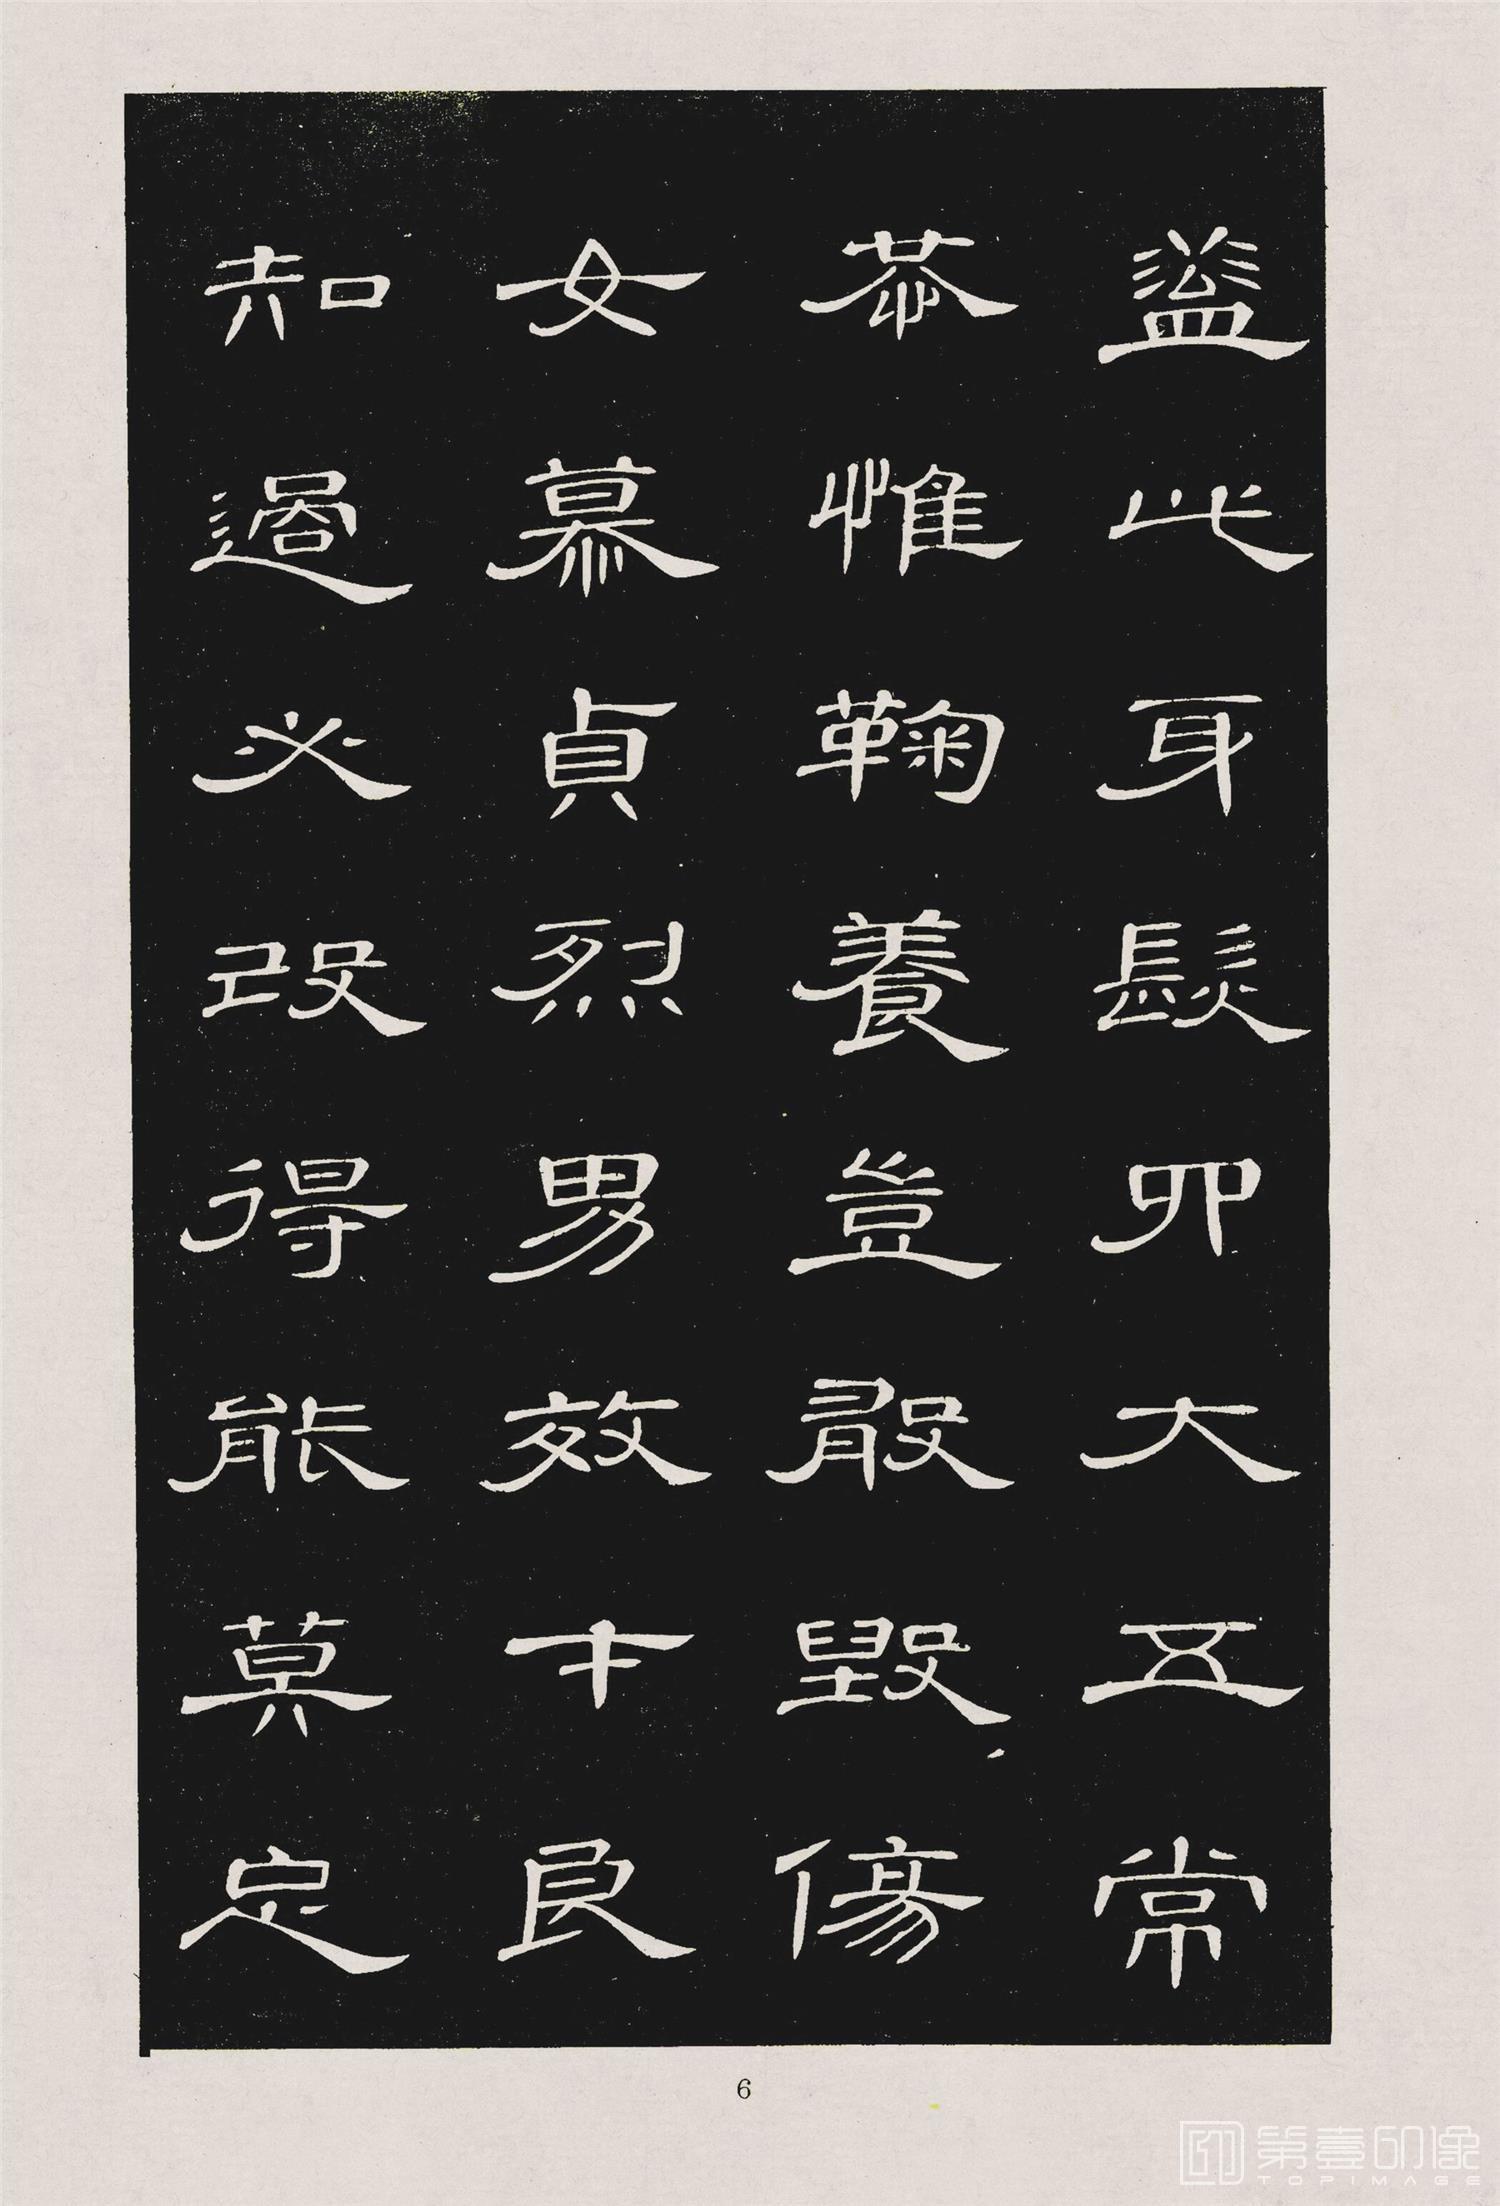 蓋此身髮四大五常
恭惟鞠養豈敢毀傷
女慕貞烈男效才良
知過必改得能莫忘
6
第壹印像
TOPIMAGE